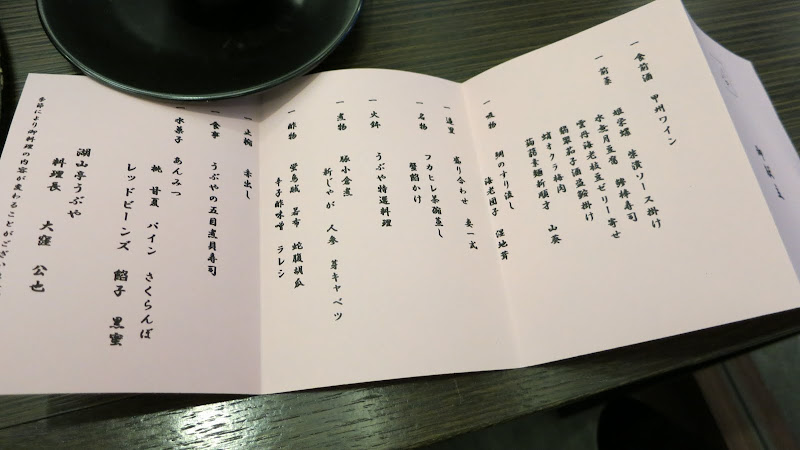 一 食前酒 甲州ワイン
一 前菜
姫栄螺 柴漬ソース掛け
水無月豆腐 鱧棒寿司
雲丹海老枝豆ゼリー寄せ
翡翠茄子酒盗餡掛け
鰻オクラ梅肉
蒟蒻素麺新順才 山葵
一 吸物
鯛のすり流し
海老団子 湿地茸
一 造里
盛り合わせ 妻一式
一 名物
フカヒレ茶碗蒸し
蟹餡かけ
一 火鉢
うぶや特選料理
一 煮物
豚小倉煮
新じゃが 人参 芽キャベツ
一 酢物
蛍烏賊 若布 蛇腹胡瓜
辛子酢味噌 ラレシ
一 止椀 赤出し
一 食事 うぶやの五目煮貝寿司
一 水菓子 あんみつ
桃 甘夏 パイン さくらんぼ
レッドビーンズ 餡子 黒蜜
湖山亭うぶや
料理長 大窪 公也
季節により御料理の内容が変わることがござい